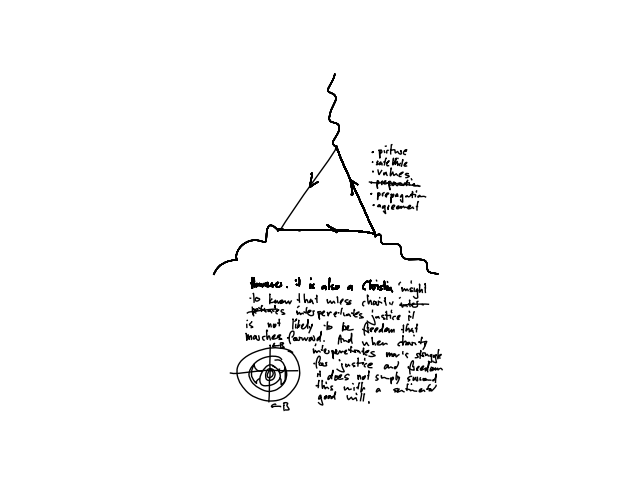 • picture
• satellite
• values.
• propagation
• agreement
However, it is also a Christian insight
to know that unless charity
interpenetrates justice it
is not likely to be freedom that
marches forward. And when charity
B
interpenetrates man's struggle
for justice and freedom
it does not simply surround
this with a sentimental
good will.
B